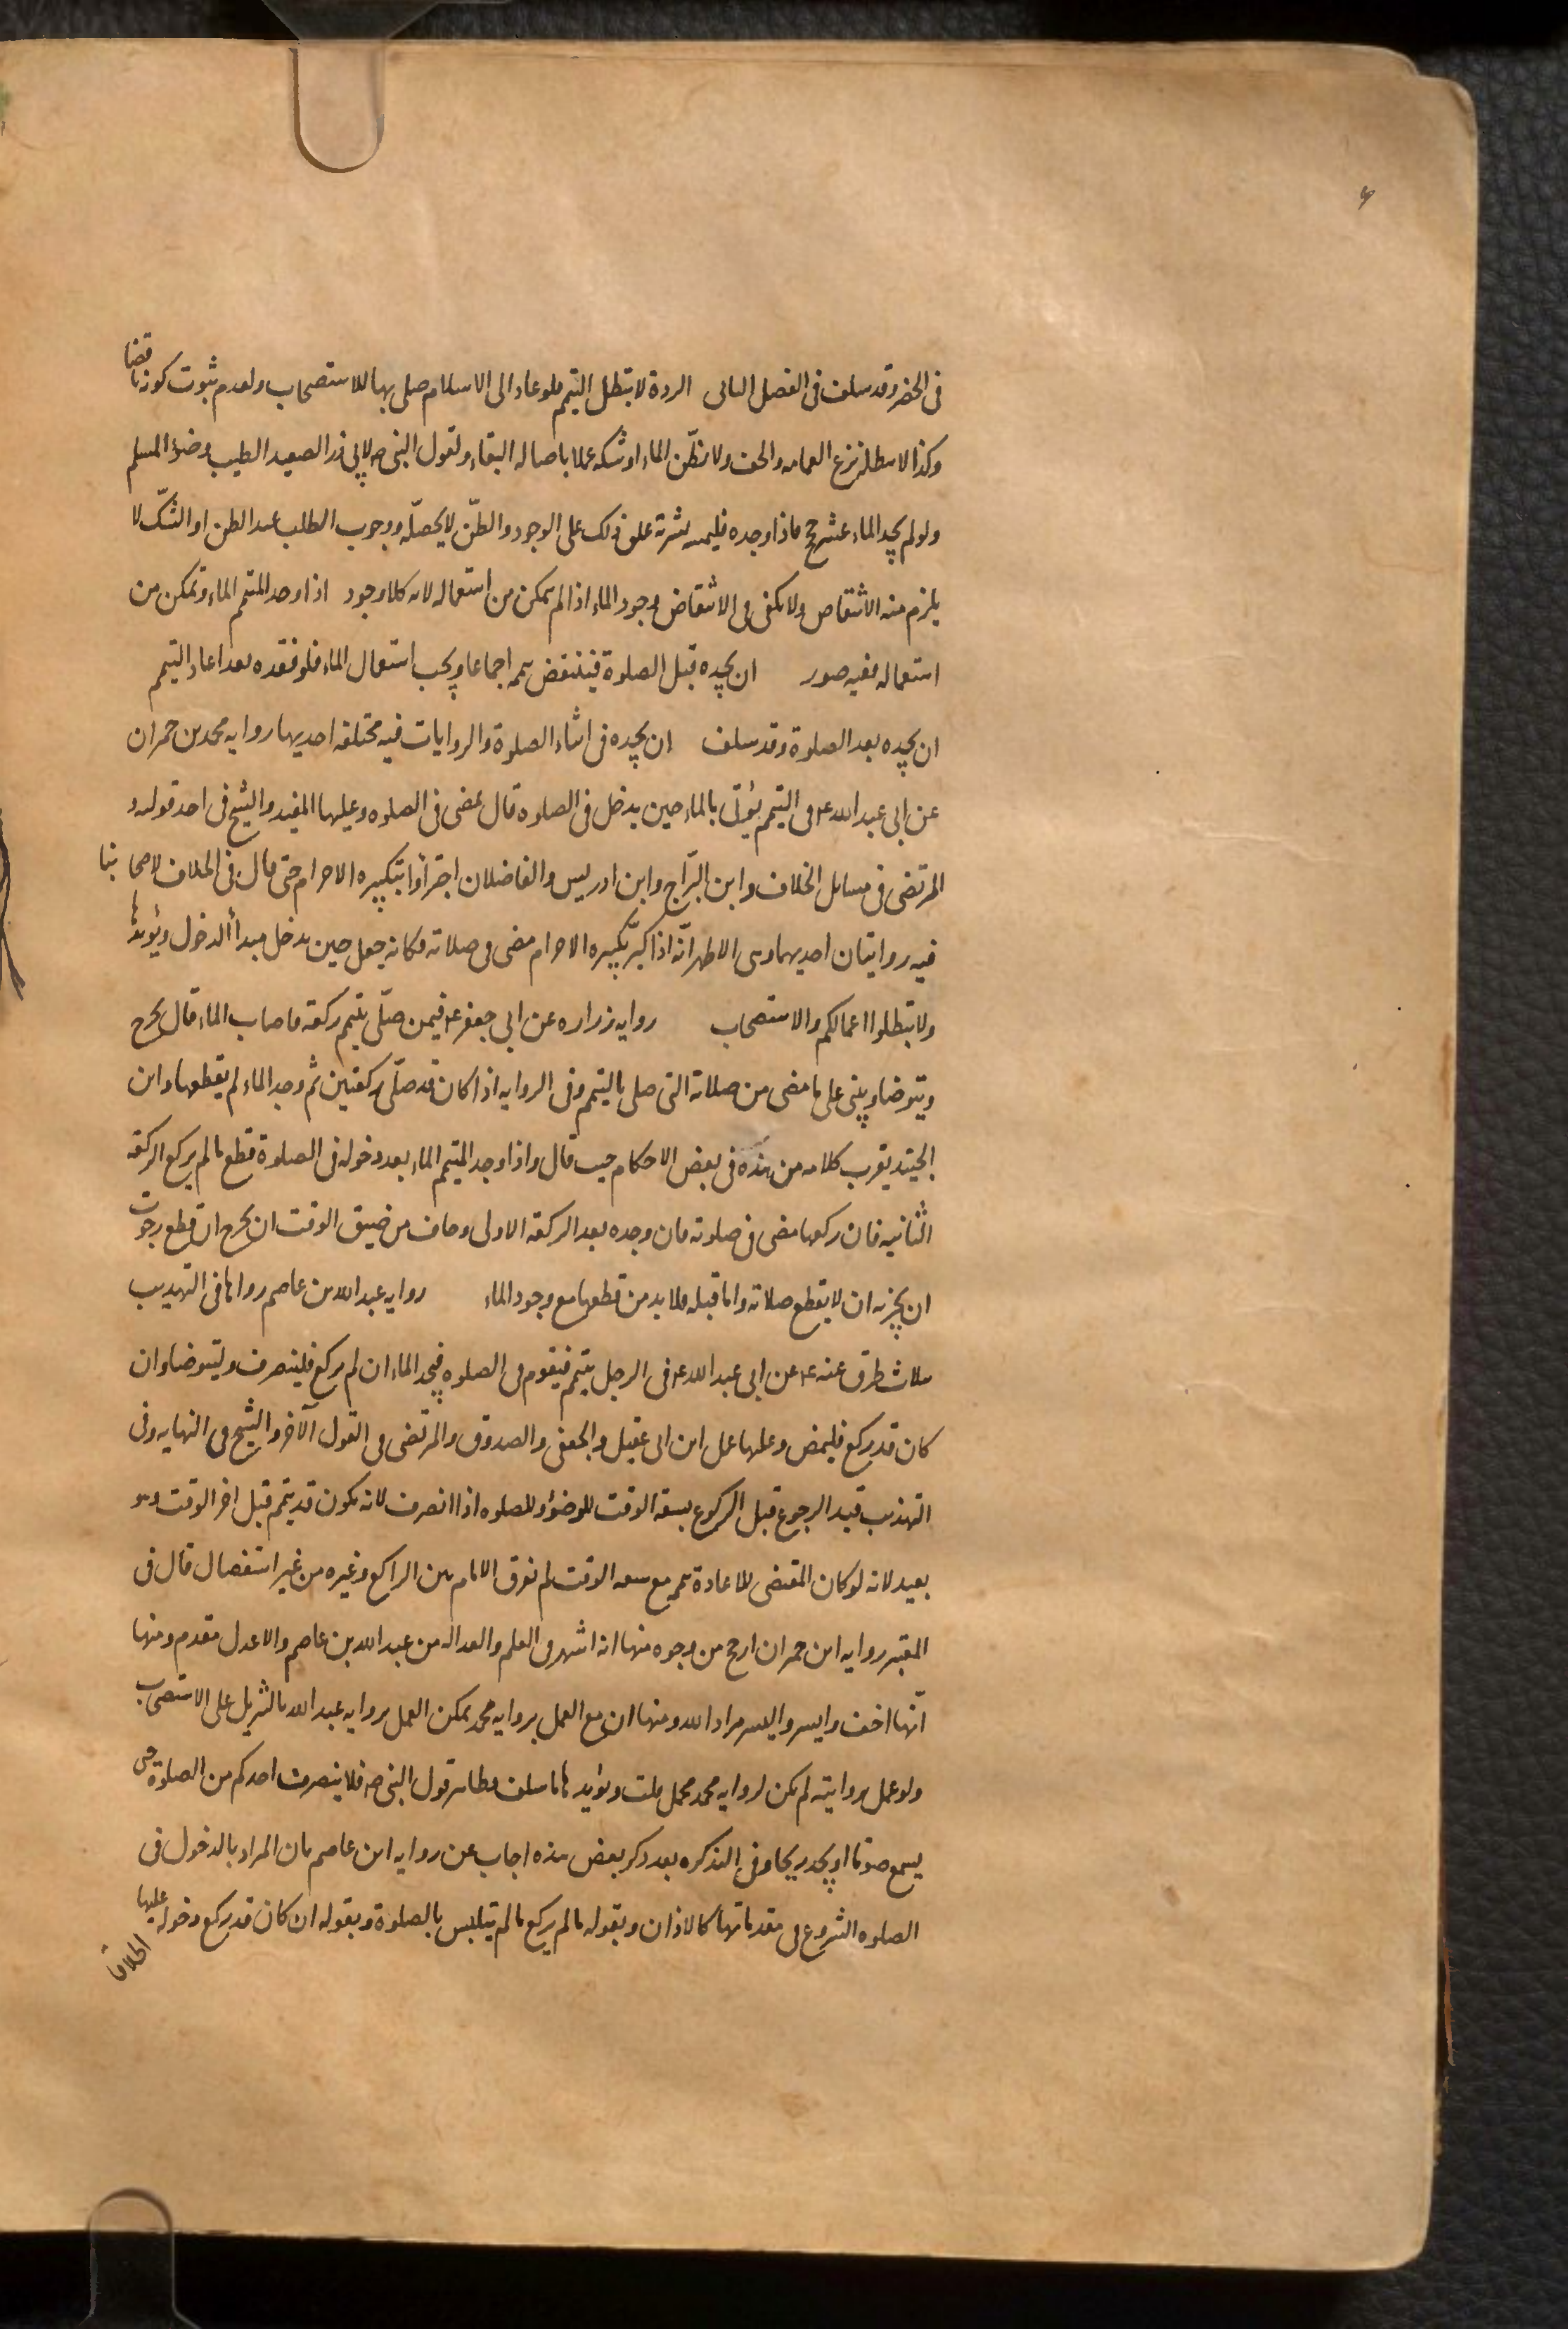 فى الحضر وقد سلف فى الفصل الثانى الردة لا تبطل التيمم فلو عاد الى الاسلام صلى بها للاستصحاب ولعدم ثبوت كونه ناقضا
وكذا لا يبطله نزع العمامه والخف ولا يظّن الماء او شكه عملا باصاله البقاء ولقول النبى ص لابى ذر الصعيد الطيب وضؤ المسلم
ولو لم يجد الماء عشر حج فاذا وجده فليمسه بشرته علق ذلك على الوجود والظّن لا يحصلّه ووجوب الطلب عند الظن او الشكّ لا
يلزم منه الانتقاض ولا يكفى فى الانتقاض وجود الماء اذا لم يتمكن من استعماله لانه كلا وجود اذا وجد المتيمم الماء وتمكن من
استعماله ففيه صور ان يجده قبل الصلوة فينتقض تيممه اجماعا ويجب استعمال الماء فلو فقده بعد اعاد التيمم
ان يجده بعد الصلوة وقد سلف ان يجده فى اثناء الصلوة والروايات فيه مختلفه احديها روايه محمد بن حمران
عن ابى عبد الله ع فى التيمم يؤتى بالماء حين يدخل فى الصلوه قال يمضى فى الصلوه وعليها المفيد والشيخ فى احد قوليه و
المرتضى فى مسايل الخلاف وابن البرّاج وابن ادريس والفاضلان اجتزأوا بتكبيره الاحرام حتى قال فى الخلاف لاصحابنا
فيه روايتان احديهما وهى الاظهر انّه اذا كبّر تكبيره الاحرام مضى فى صلاته وكانه جعل حين يدخل مبدأ الدخول ويؤيدها
ولا تبطلوا اعمالكم والاستصحاب روايه زراره عن ابى جعفر ع فيمن صلّى بتيمم ركعة فاصاب الماء قال يخرج
ويتوضا ويبنى على ما مضى من صلاته التى صلى بالتيمم وفى الروايه اذا كان قد صلّى ركعتين ثم وجد الماء لم يقطعها وابن
الجنيد يقرب كلامه من هذه فى بعض الاحكام حيث قال واذا وجد المتيمم الماء بعد دخوله فى الصلوة قطع ما لم يركع الركعة
الثانيه فان ركعها مضى فى صلوته فان وجده بعد الركعة الاولى وخاف من ضيق الوقت ان يخرج ان قطع رجوت
ان يجزيه ان لا يقطع صلاته واما قبله فلا بد من قطعها مع وجود الماء روايه عبد الله بن عاصم رواها فى التهذيب
بثلاث طرق عنه ع عن ابى عبد الله ع فى الرجل يتيمم فيقوم فى الصلوه فيجد الماء ان لم يركع فلينصرف وليتوضا وان
كان قد ركع فليمض وعليها عمل ابن ابى عقيل والجعفى والصدوق والمرتضى فى القول الآخر والشيخ فى النهايه وفى
التهذيب قيد الرجوع قبل الركوع بسعة الوقت للوضؤ وللصلوه اذا انصرف لانه يكون قد يتيمم قبل اخر الوقت وهو
بعيد لانه لو كان المقتضى للاعادة تيممه مع سعه الوقت لم يفرق الامام بين الراكع وغيره من غير استفصال قال فى
المعتبر روايه ابن حمران ارجح من وجوه منها انه اشهر فى العلم والعداله من عبد الله بن عاصم والاعدل مقدم ومنها
انّها اخف وايسر واليسر مراد الله ومنها ان مع العمل بروايه محمد يمكن العمل بروايه عبد الله بالتنزيل على الاستحباب
ولو عمل بروايته لم يكن لروايه محمد محمل قلت ويؤيد ها ما سلف وظاهر قول النبى ص فلا ينصرف احدكم من الصلوة حتى
يسمع صوتا او يجد ريحا وفى التذكره بعد ذكر بعض هذه اجاب عن روايه ابن عاصم بان المراد بالدخول فى
الصلوه الشروع فى مقدماتها كالاذان وبقوله ما لم يركع ما لم يتلبس بالصلوة وبقوله ان كان قد ركع دخوله عليها
اطلاقا